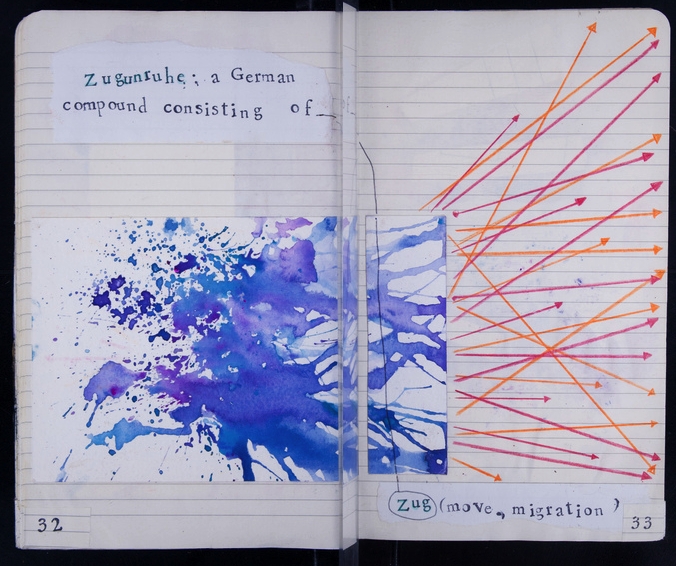 Zugunruhe; a German
compound consisting of
Zug (move, migration)
32
33